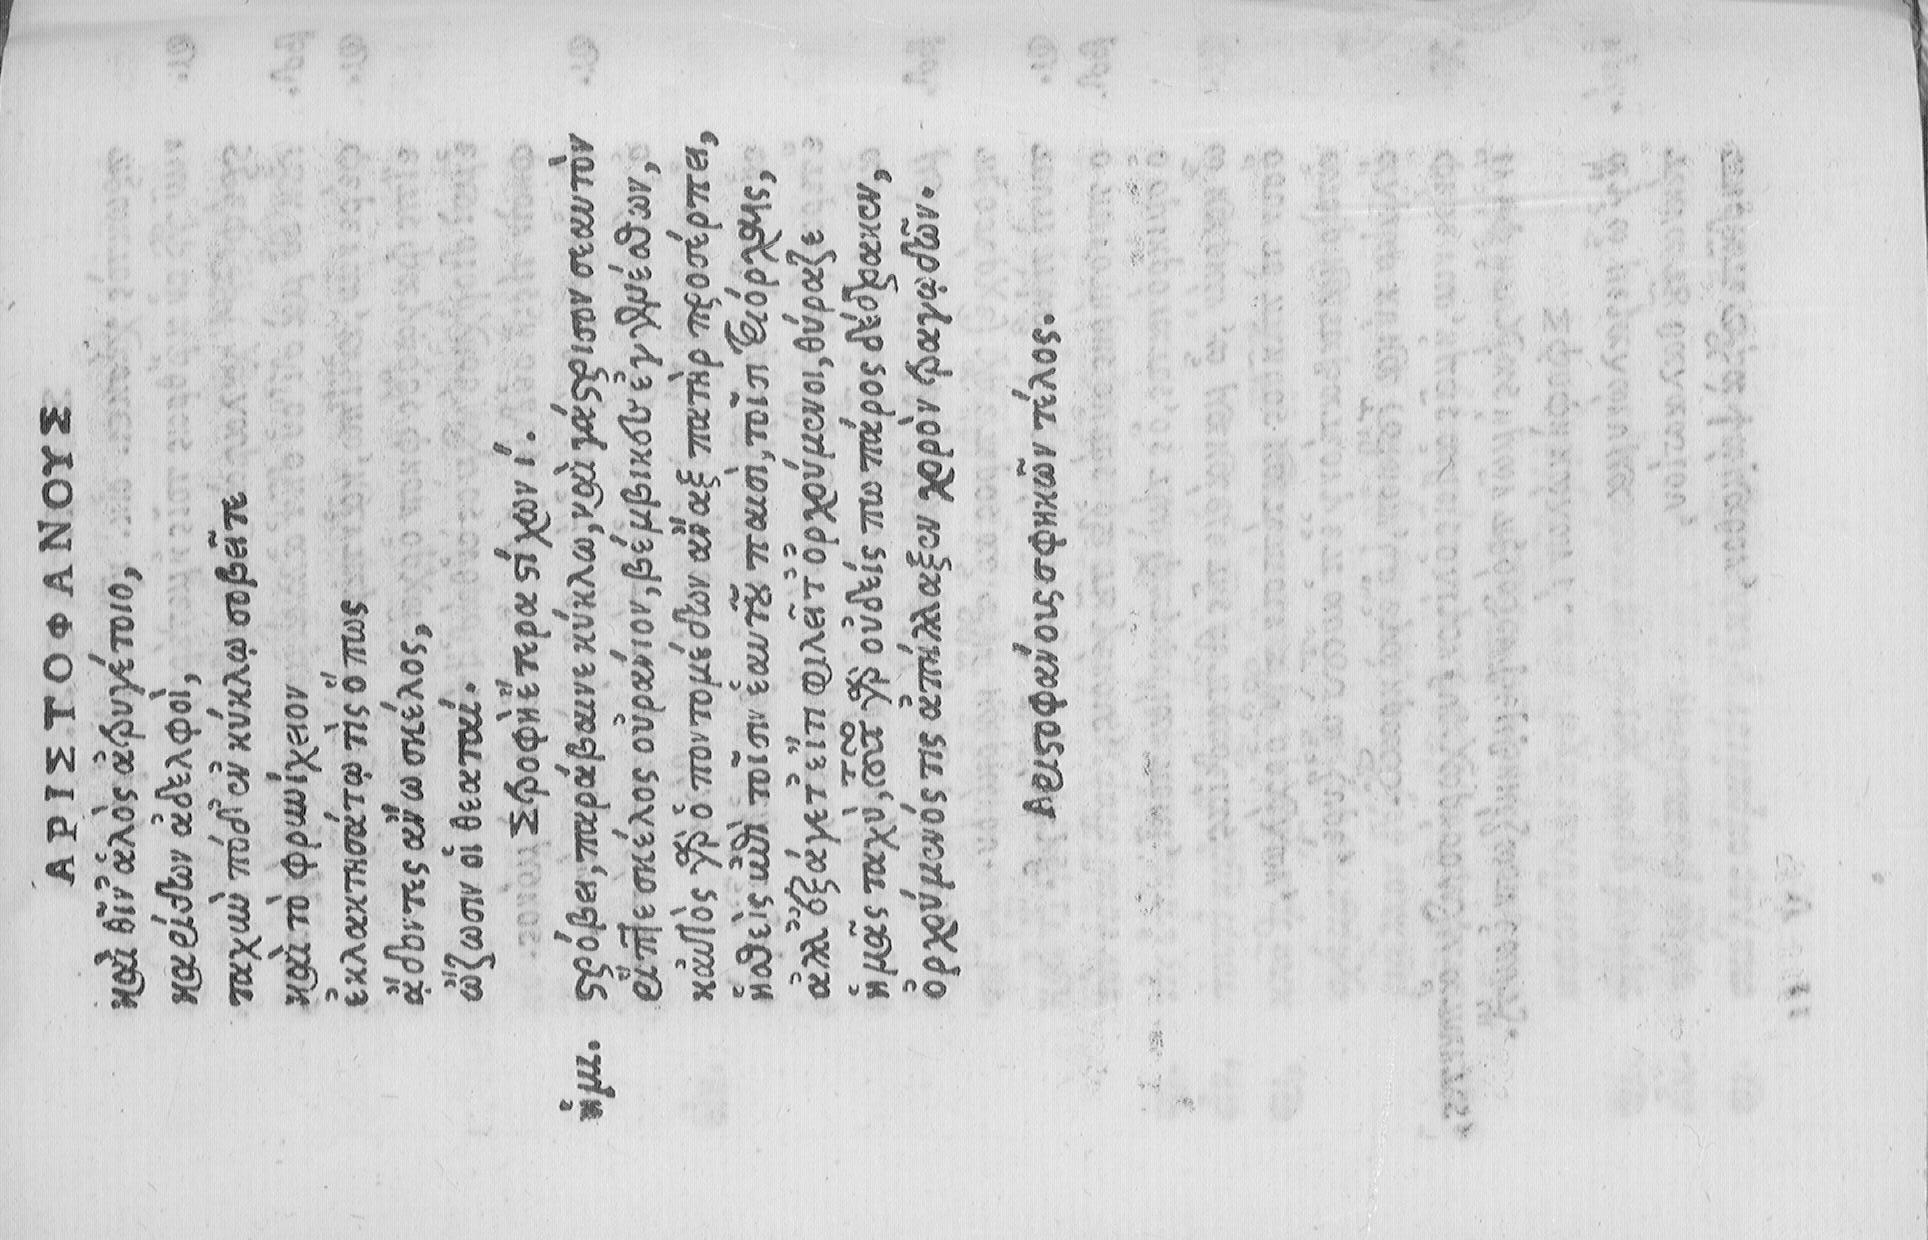 ΑΡΙΣΤΟΦΑΝΟΥΣ
καὶ θῖν' ἁλὸς ἀτρυγέτοιο,
καρίδων ἀδελφοὶ,
ταχὺν πόδ' ἐν κύκλῳ σοβεῖτε
καὶ τὸ φρυνίχειον
ἐκλακτησάτω τὶς ὅπως
ᾄδοντες ἄνω σκέλος,
ὤζωσιν οἱ θεαταί.
Στροφὴ ἑτέρα στίχων ί.
ἡμι. στρόβει, παράβαινε κύκλω, καὶ γάστρισον σεαυτὸν
ῥίπτε σκέλος οὐράνιον, βέμβικες ἐγγενέσθων,
καὐτὸς γὰρ ὁ ποντομέδων ἄναξ πατὴρ προσέρπει,
ἡσθεὶς ἐπὶ τοῖσιν ἑαυτοῦ παισὶ, τοῖσι τριόρχοις,
ἀλλ' ἐξάγετ' εἴ τι φιλεῖτ' ὀρχούμενοι, θύραζε
ἡμᾶς ταχὺ, τοῦτο γὰρ οὐδείς πω πάρος δέδρακεν,
ὀρχούμενός τις ἀπήλλαξεν χορὸν τραγῳδῶν.
Ἀριστοφάνους σφηκῶν τέλος.